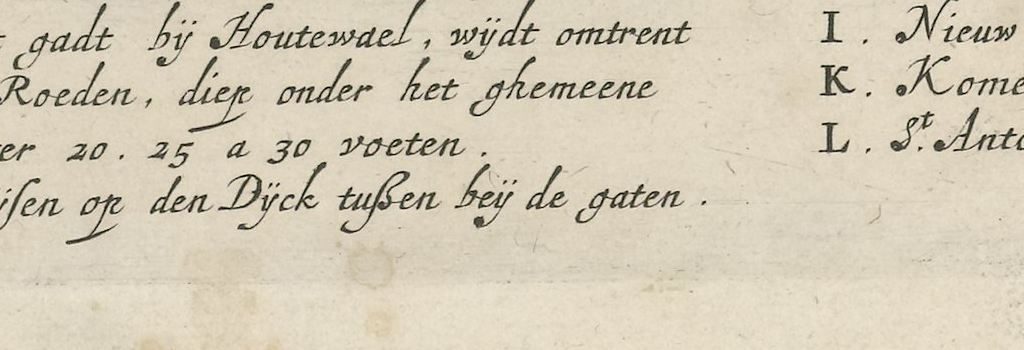 gadt bÿ Houtewael, wÿdt omtrent
Roeden, diep onder het ghemeene
20. 25 a 30 voeten.
op den Dÿck tußen beÿ de gaten.
I. Nieuw
K.
L. St.